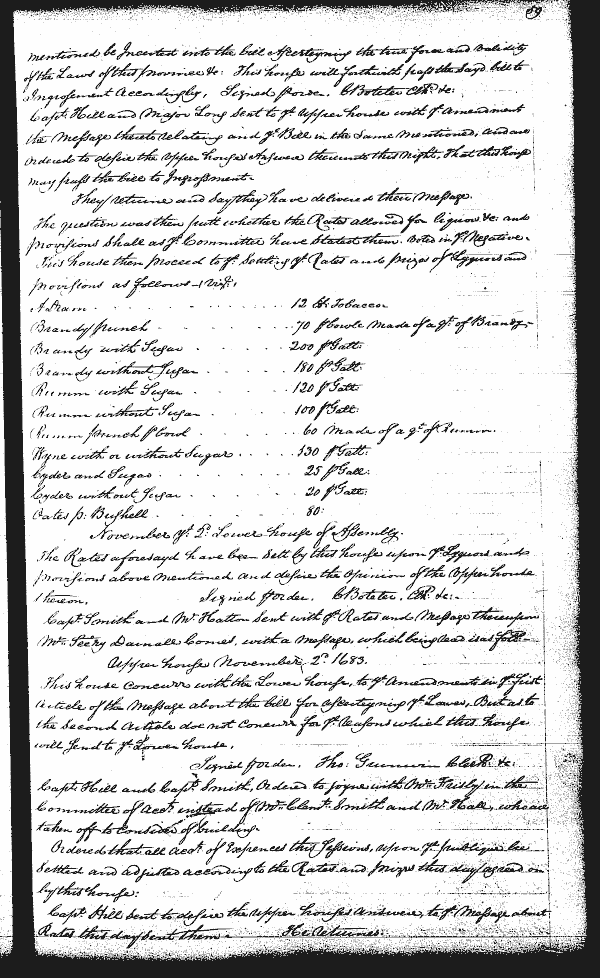 59
mentioned be Incerted into the bill Ascertayning the true force and Validity
of the Laws of this province &c: This house will forthwith pass the Sayd bill to
Ingrossment Accordingly, Signed p order. C Boteler Clk: &c:
Capt. Hill and Major Long sent to ye Upper house with ye Amendment
the Message thereto relateing and ye Bill in the Same Mentioned, and are
Ordered to desire the Upper houses Answere thereunto this Night, That this house
may pass the bill to Ingrossment.
They returne and Say they have delivered their Message.
The question was then putt whether the Rates allowed for liquors &c: and
provisions Shall as ye Committee have Stated them. Voted in ye Negative.
This house then proceed to ye Settling ye Rates and prizes of Lyquors and
provisions as follows vizt:
A Dram 12 lb. Tobaccoe
Brandy punch 70 p bowle made of a qt. of Brandy
Brandy with Sugar 200 p Gall:
Brandy without Sugar 180 p Gall:
Rumm with Sugar 120 p Gall:
Rumm without Sugar 100 p Gall:
Rumm punch p bowl 60 made of a qt. of Rumm.
Wyne with or without Sugar 130 p Gall:
Cyder and Sugar 25 p Gall:
Cyder without Sugar 20 p Gall:
Oates p: Bushell 80:
November ye 2d: Lower house of Assembly.
The Rates aforesayd have been Sett by this house upon ye Lyquors and
provisions above Mentioned and desire the Opinion of the Upper house
thereon. Signed p order. C Boteler. Clk: &c:
Capt. Smith and Mr. Hatton Sent with ye Rates and Message thereupon
Mr. Secry Darnall Comes, with a Message, which being read is as foll:
Upper house November, 2d. 1683.
This house Concurr with the Lower house, to ye Amendments in ye first
Article of the Message about the bill for Ascertayning ye Laws, But as to
the Second Article doe not Concurr for ye reasons which this house
will Send to ye Lower house.
Signed p order. Tho: Grunwin Clerk: &c:
Capt. Hill and Capt. Smith, Ordered to joyne with Mr. Frisby in the
Committee of Acct. instead of Mr. Clemt. Smith and Mr. Hall, who are
taken off to Consider of building.
Ordered that all Acct. of Expences this Sessions, upon ye publique be
Settled and adjusted according to the Rates and prizes this day agreed on
by this house.
Capt. Hill sent to desire the Upper houses Answere, to ye Message about
Rates this day Sent them. He returnes.